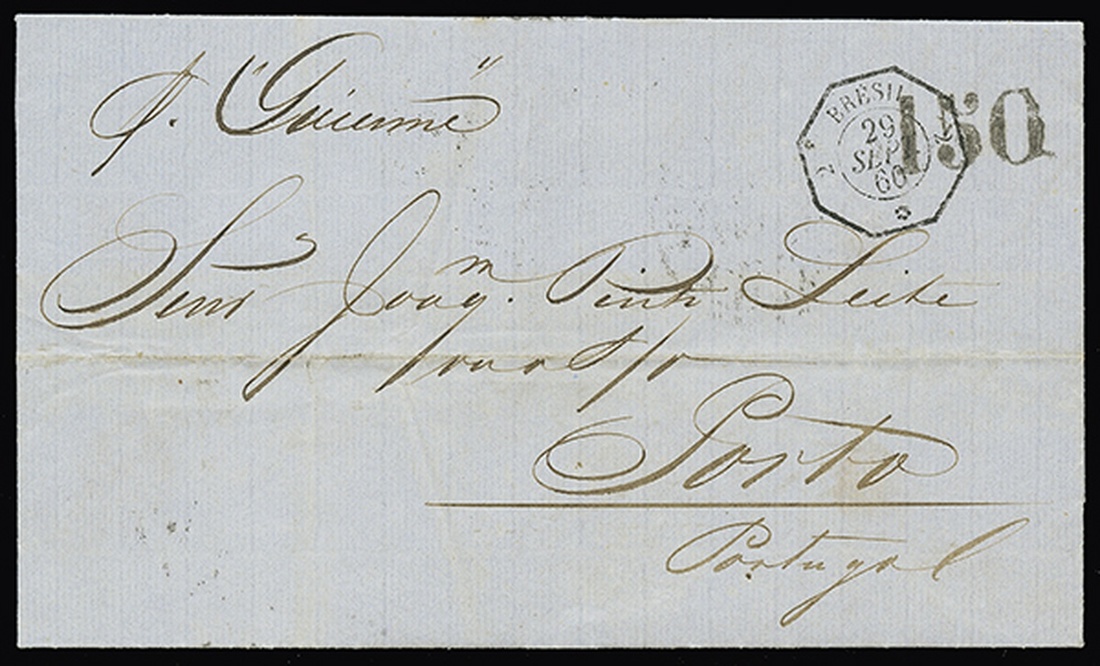 p. "Guienne"
BRÉSIL
2 2
29
SEPT
60
150
Senr Joaqm. Pinto Leite
Porto
Portugal